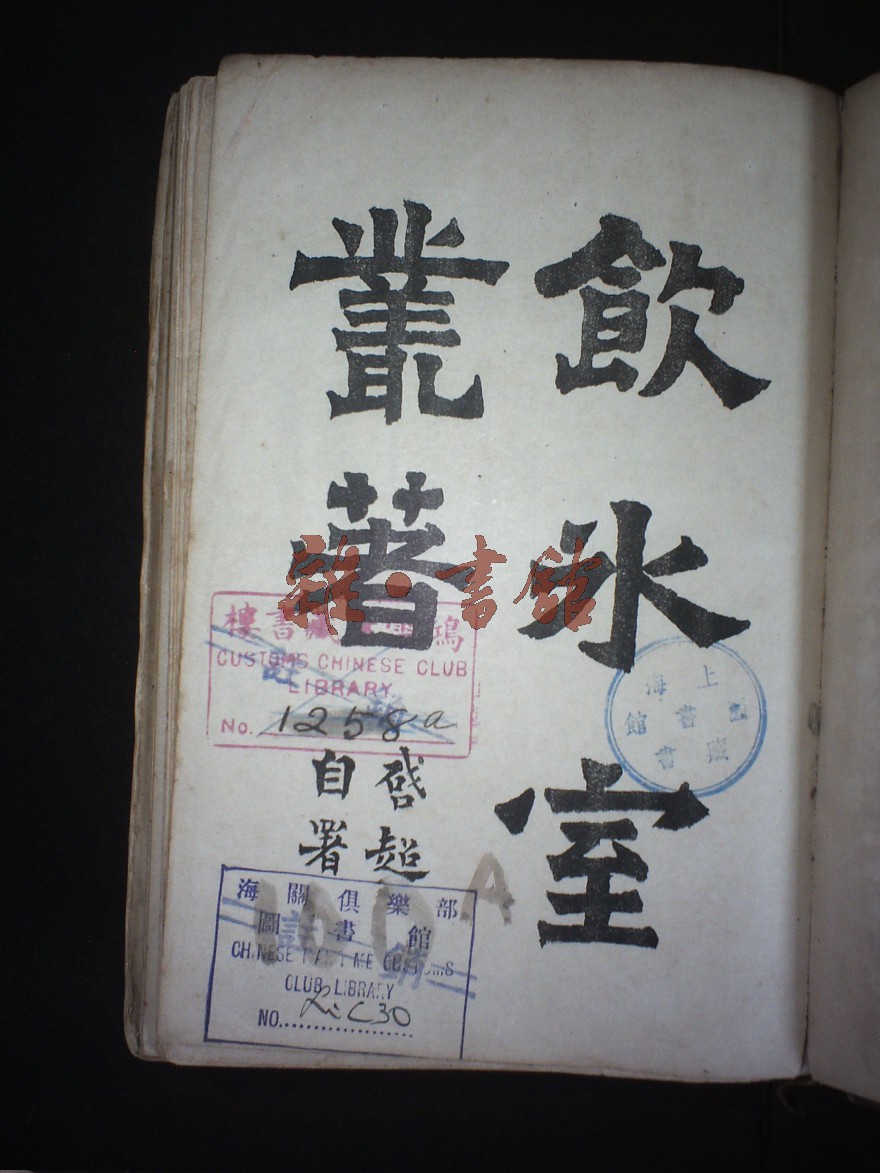 飲冰室
叢著
啓超
自署
雜·書館
樓書藏
鴻
CUSTOMS CHINESE CLUB
LIBRARY
No. 1258a
上海
圖書館
藏書
100A
海關俱樂部
圖書館
註銷
CHINESE MARITIME CUSTOMS
CLUB LIBRARY
NO.